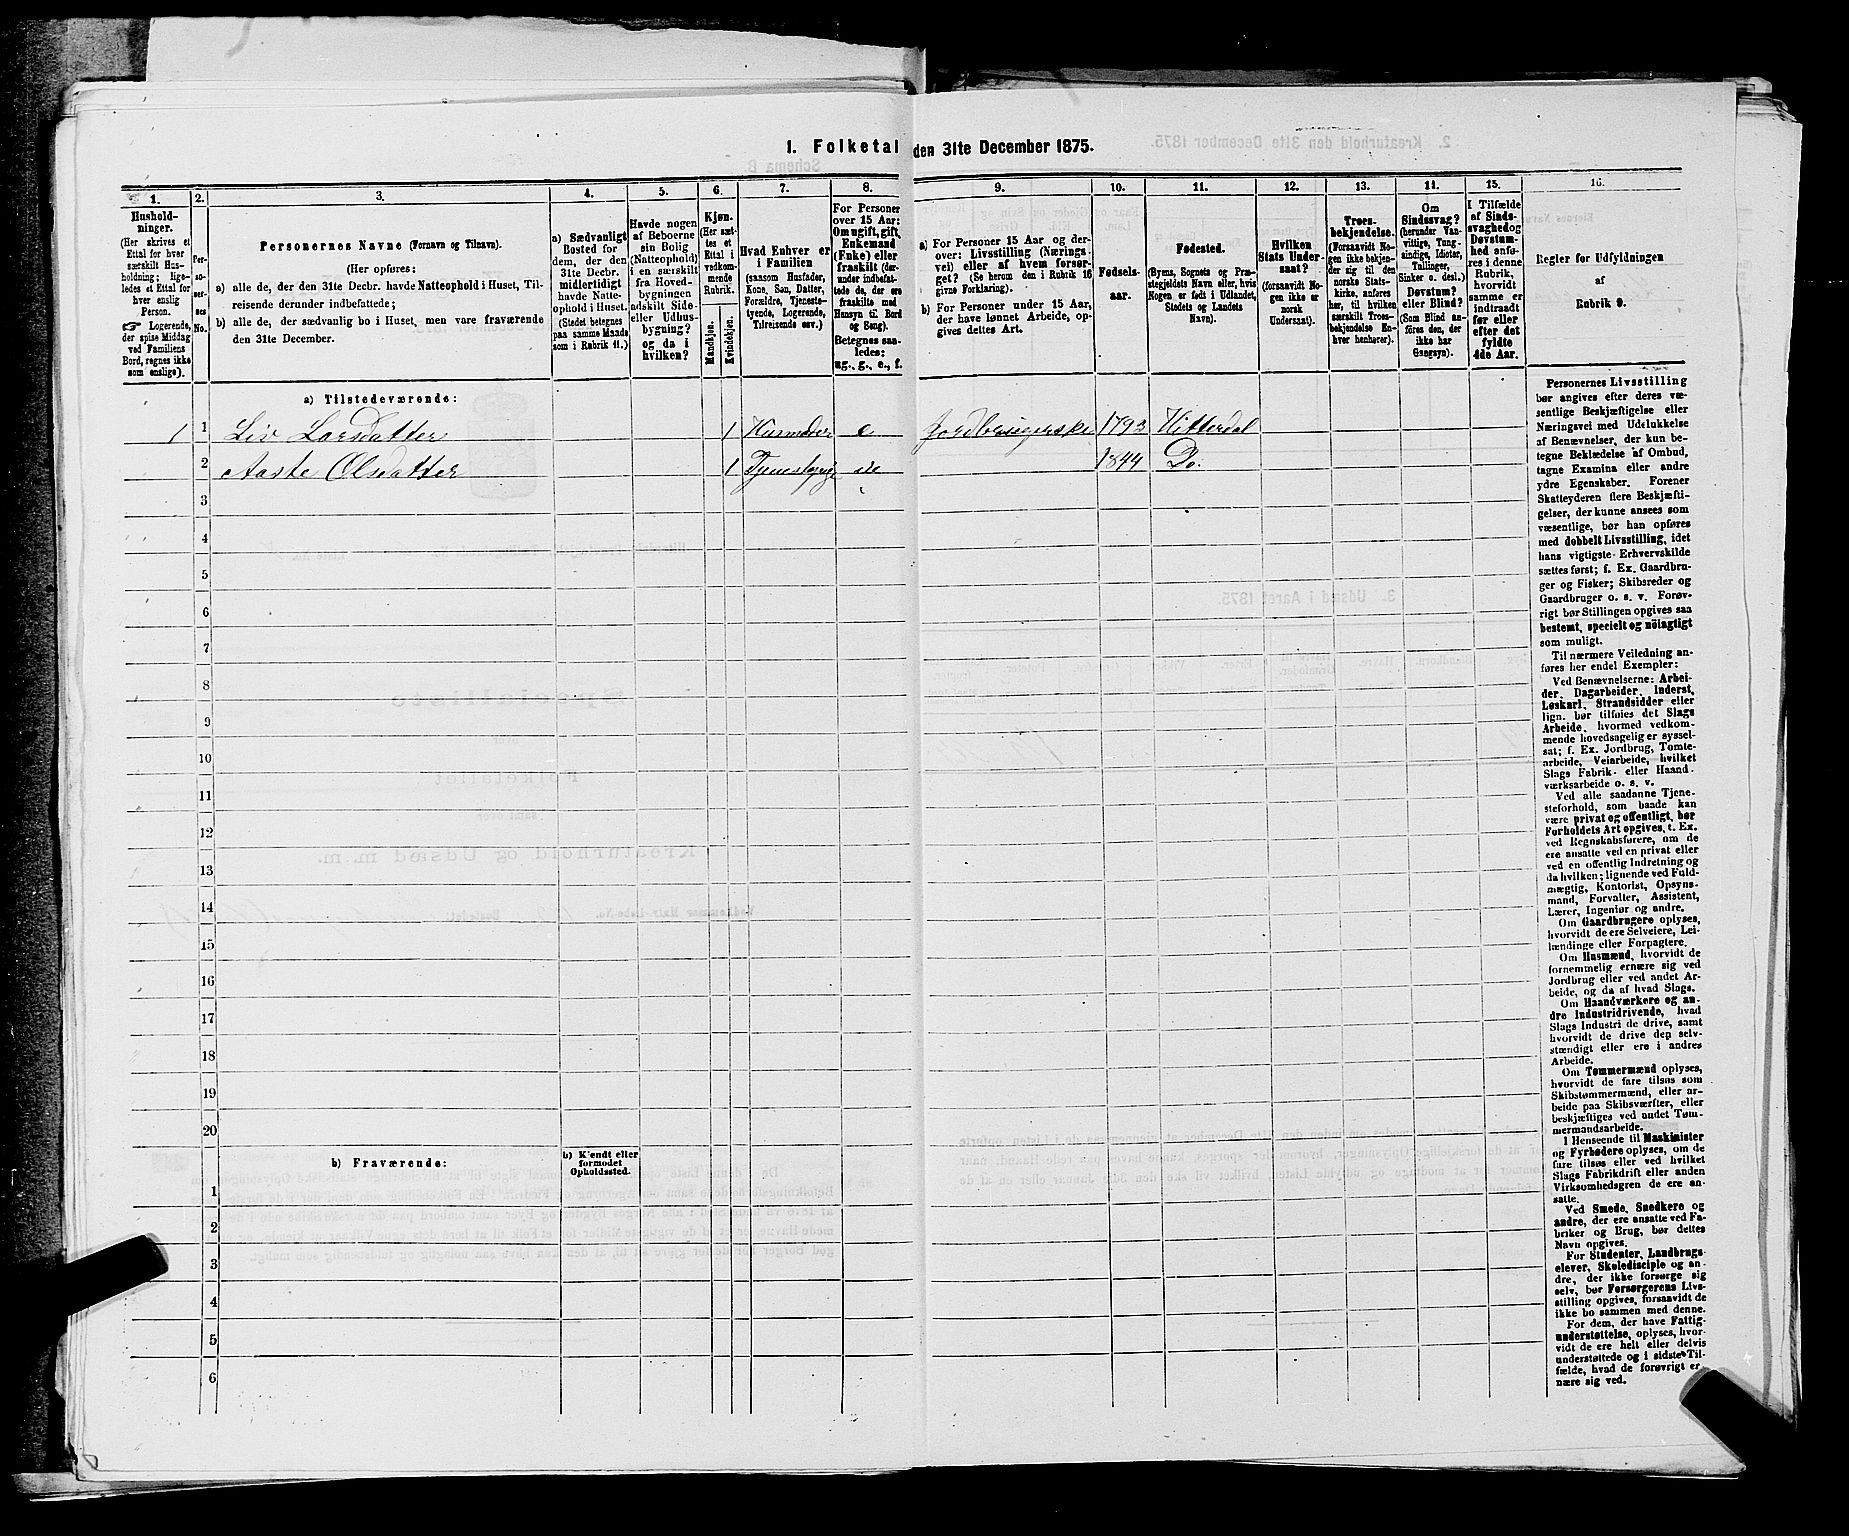 1. Folketal den 31te December 1875.
1.
Hushold-
ninger.
(Her skrives et
Ettal for hver
særskilt Hus-
holdning; lige-
ledes et Ettal for
hver enslig
Person.
☞ Logerende,
der spise Middag
ved Familiens
Bord, regnes ikke
som enslige).
2.
Per-
so-
ner-
nes
No.
3.
Personernes Navne (Fornavn og Tilnavn).
(Her opføres:
a) alle de, der den 31te Decbr. havde Natteophold i Huset, Til-
reisende derunder indbefattede;
b) alle de, der sædvanlig bo i Huset, men vare fraværende
den 31te December.
4.
a) Sædvanligt
Bosted for
dem, der den
31te Decbr.
midlertidigt
havde Natte-
ophold i Huset.
(Stedet betegnes
paa samme Maade
som i Rubrik 11.)
5.
Havde nogen
af Beboerne
sin Bolig
(Natteophold)
i en særskilt
fra Hoved-
bygningen
adskilt Side-
eller Udhus-
bygning?
og da i
hvilken?
6.
Kjøn.
(Her sæt-
tes et
Ettal i
vedkom-
mende
Rubrik.
Mandkjøn.
Kvindekjøn.
7.
Hvad Enhver er
i Familien
(saasom Husfader,
Kone, Søn, Datter,
Forældre, Tjeneste-
tyende, Logerende,
Tilreisende osv.)
8.
For Personer
over 15 Aar:
Om ugift, gift,
Enkemand
(Enke) eller
fraskilt (der-
under indbefat-
tede de, der ere
fraskilte med
Hensyn til Bord
og Seng).
Betegnes saa-
ledes:
ug., g., e., f.
9.
a) For Personer 15 Aar og der-
over: Livsstilling (Nærings-
vei) eller af hvem forsør-
get? (Se herom den i Rubrik 16
givne Forklaring).
b) For Personer under 15 Aar,
der have lønnet Arbeide, op-
gives dettes Art.
10.
Fødsels-
aar.
11.
Fødested.
(Byens, Sognets og Præ-
stegjeldets Navn eller, hvis
Nogen er født i Udlandet,
Stedets og Landets
Navn).
12.
Hvilken
Stats Under-
saat?
(forsaavidt No-
gen ikke er
norsk
Undersaat).
13.
Troes-
bekjendelse.
(Forsaavidt No-
gen ikke bekjen-
der sig til den
norske Stats-
kirke, anføres
her, til hvilken
særskilt Troes-
bekjendelse En-
hver henhører).
14.
Om
Sindssvag?
(herunder Van-
vittige, Tung-
sindige, Idioter,
Tullinger,
Sinker o. desl.)
Døvstum?
eller Blind?
(Som Blind an-
føres den, der
ikke har
Gangsyn).
15.
I Tilfælde
af Sinds-
svaghed og
Døvstum-
hed anfø-
res i denne
Rubrik,
hvorvidt
samme er
indtraadt
før eller
efter det
fyldte
4de Aar.
16.
Regler for Udfyldningen
af
Rubrik 9.
a) Tilstedeværende:
1 1 Liv Larsdatter 1 Husmoder e Jordbrugerske 1792 Hitterdal
2 Aaste Olsdatter 1 1844 Do.
3
4
5
6
7
8
9
10
11
12
13
14
15
16
17
18
19
20
b) Fraværende:
b) Kjendt eller
formodet
Opholdssted.
1
2
3
4
5
6
Personernes Livsstilling
bør angives efter deres væ-
sentlige Beskjæftigelse eller
Næringsvei med Udelukkelse
af Benævnelser, der kun be-
tegne Beklædelse af Ombud,
tagne Examina eller andre
ydre Egenskaber. Forener
Skatteyderen flere Beskjæfti-
gelser, der kunne ansees som
væsentlige, bør han opføres
med dobbelt Livsstilling, idet
hans vigtigste Erhvervskilde
sættes først; f. Ex. Gaardbru-
ger og Fisker; Skibsreder og
Gaardbruger o. s. v. Forøv-
rigt bør Stillingen opgives saa
bestemt, specielt og nöiagtigt
som muligt.
Til nærmere Veiledning an-
føres her endel Exempler:
Ved Benævnelserne: Arbei-
der, Dagarbeider, Inderst,
Løskarl, Strandsidder eller
lign. bør tilføies det Slags
Arbeide, hvormed vedkom-
mende hovedsagelig er syssel-
sat; f. Ex. Jordbrug, Tomte-
arbeide, Veiarbeide, hvilket
Slags Fabrik- eller Haand-
værksarbeide o. s. v.
Ved alle saadanne Tjene-
steforhold, som baade kan
være privat og offentligt, bør
Forholdets Art opgives, t. Ex.
ved Regnskabsførere, om de
ere ansatte ved en privat eller
ved en offentlig Indretning og
da hvilken; lignende ved Fuld-
mægtig, Kontorist, Opsyns-
mand, Forvalter, Assistent,
Lærer, Ingeniør og andre.
Om Gaardbrugere oplyses,
hvorvidt de ere Selveiere, Lei-
lændinge eller Forpagtere.
Om Husmænd, hvorvidt de
fornemmelig ernære sig ved
Jordbrug eller ved andet Ar-
beide, og da af hvad Slags.
Om Haandværkere og an-
dre Industridrivende, hvad
Slags Industri de drive, samt
hvorvidt de drive den selv-
stændigt eller ere i andres
Arbeide.
Om Tømmermænd oplyses,
hvorvidt de fare tilsøs som
Skibstømmermænd, eller ar-
beide paa Skibsværfter, eller
beskjæftiges ved andet Tøm-
mermandsarbeide.
I Henseende til Maskinister
og Fyrbødere oplyses, om de
fare tilsøs eller ved hvilket
Slags Fabrikdrift eller anden
Virksomhedsgren de ere an-
satte.
Ved Smede, Snedkere og
andre, der ere ansatte ved Fa-
briker og Brug, bør dettes
Navn opgives.
For Studenter, Landbrugs-
elever, Skoledisciple og an-
dre, der ikke forsørge sig
selv, bør Forsørgerens Livs-
stilling opgives, forsaavidt de
ikke bo sammen med denne.
For dem, der have Fattig-
understøttelse, oplyses, hvor-
vidt de ere helt eller delvis
understøttede og i sidste Til-
fælde, hvad de forøvrigt er-
nære sig ved.